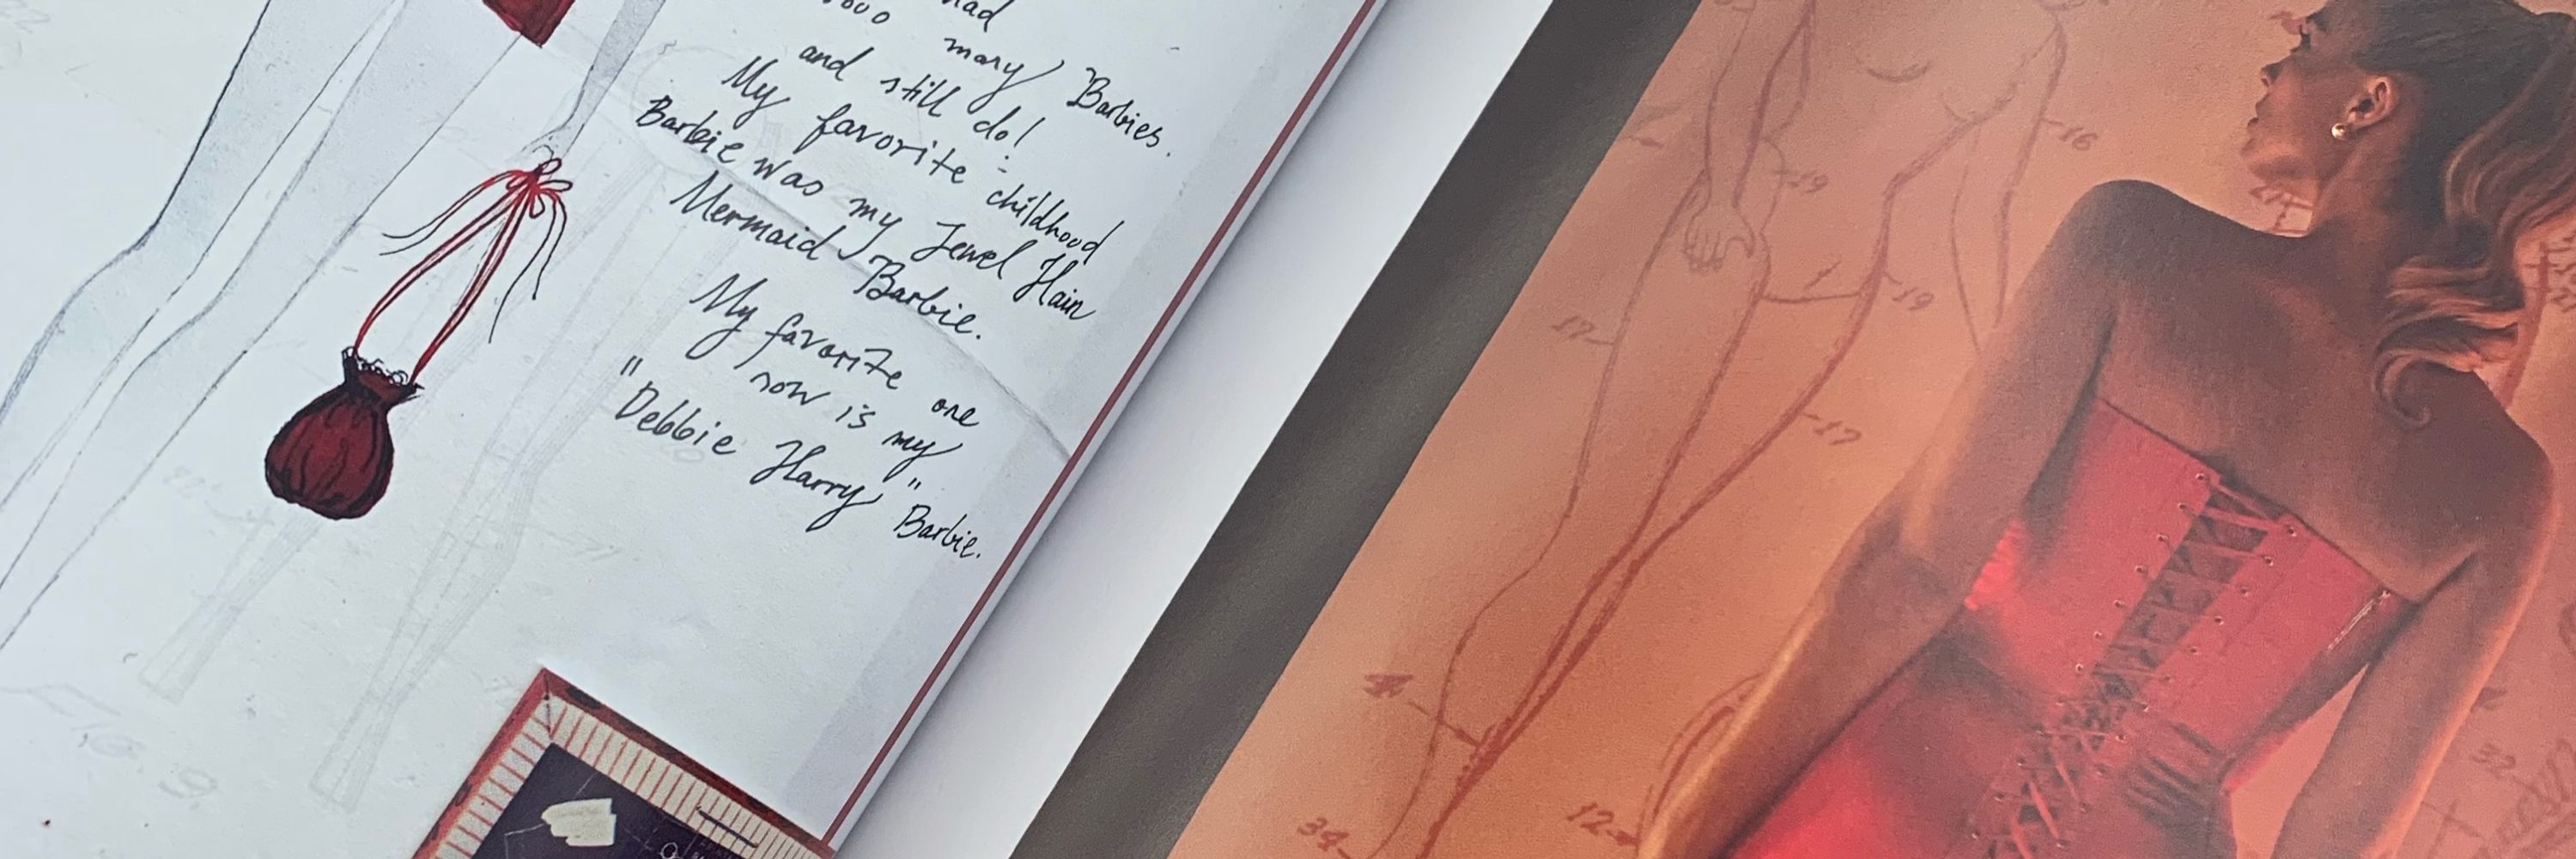 many Barbies.
and still do!
My favorite childhood
Barbie was my Jewel Hair
Mermaid Barbie.
My favorite one
now is my
"Debbie Harry" Barbie.
16
19
17
19
17
34
12
32